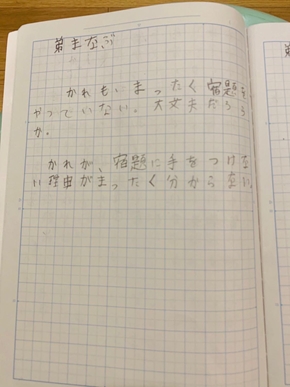 弟まなぶ
かれも、まったく宿題を
やっていない。大丈夫だろう
か。
かれが、宿題に手をつけな
い理由がまったく分からない。